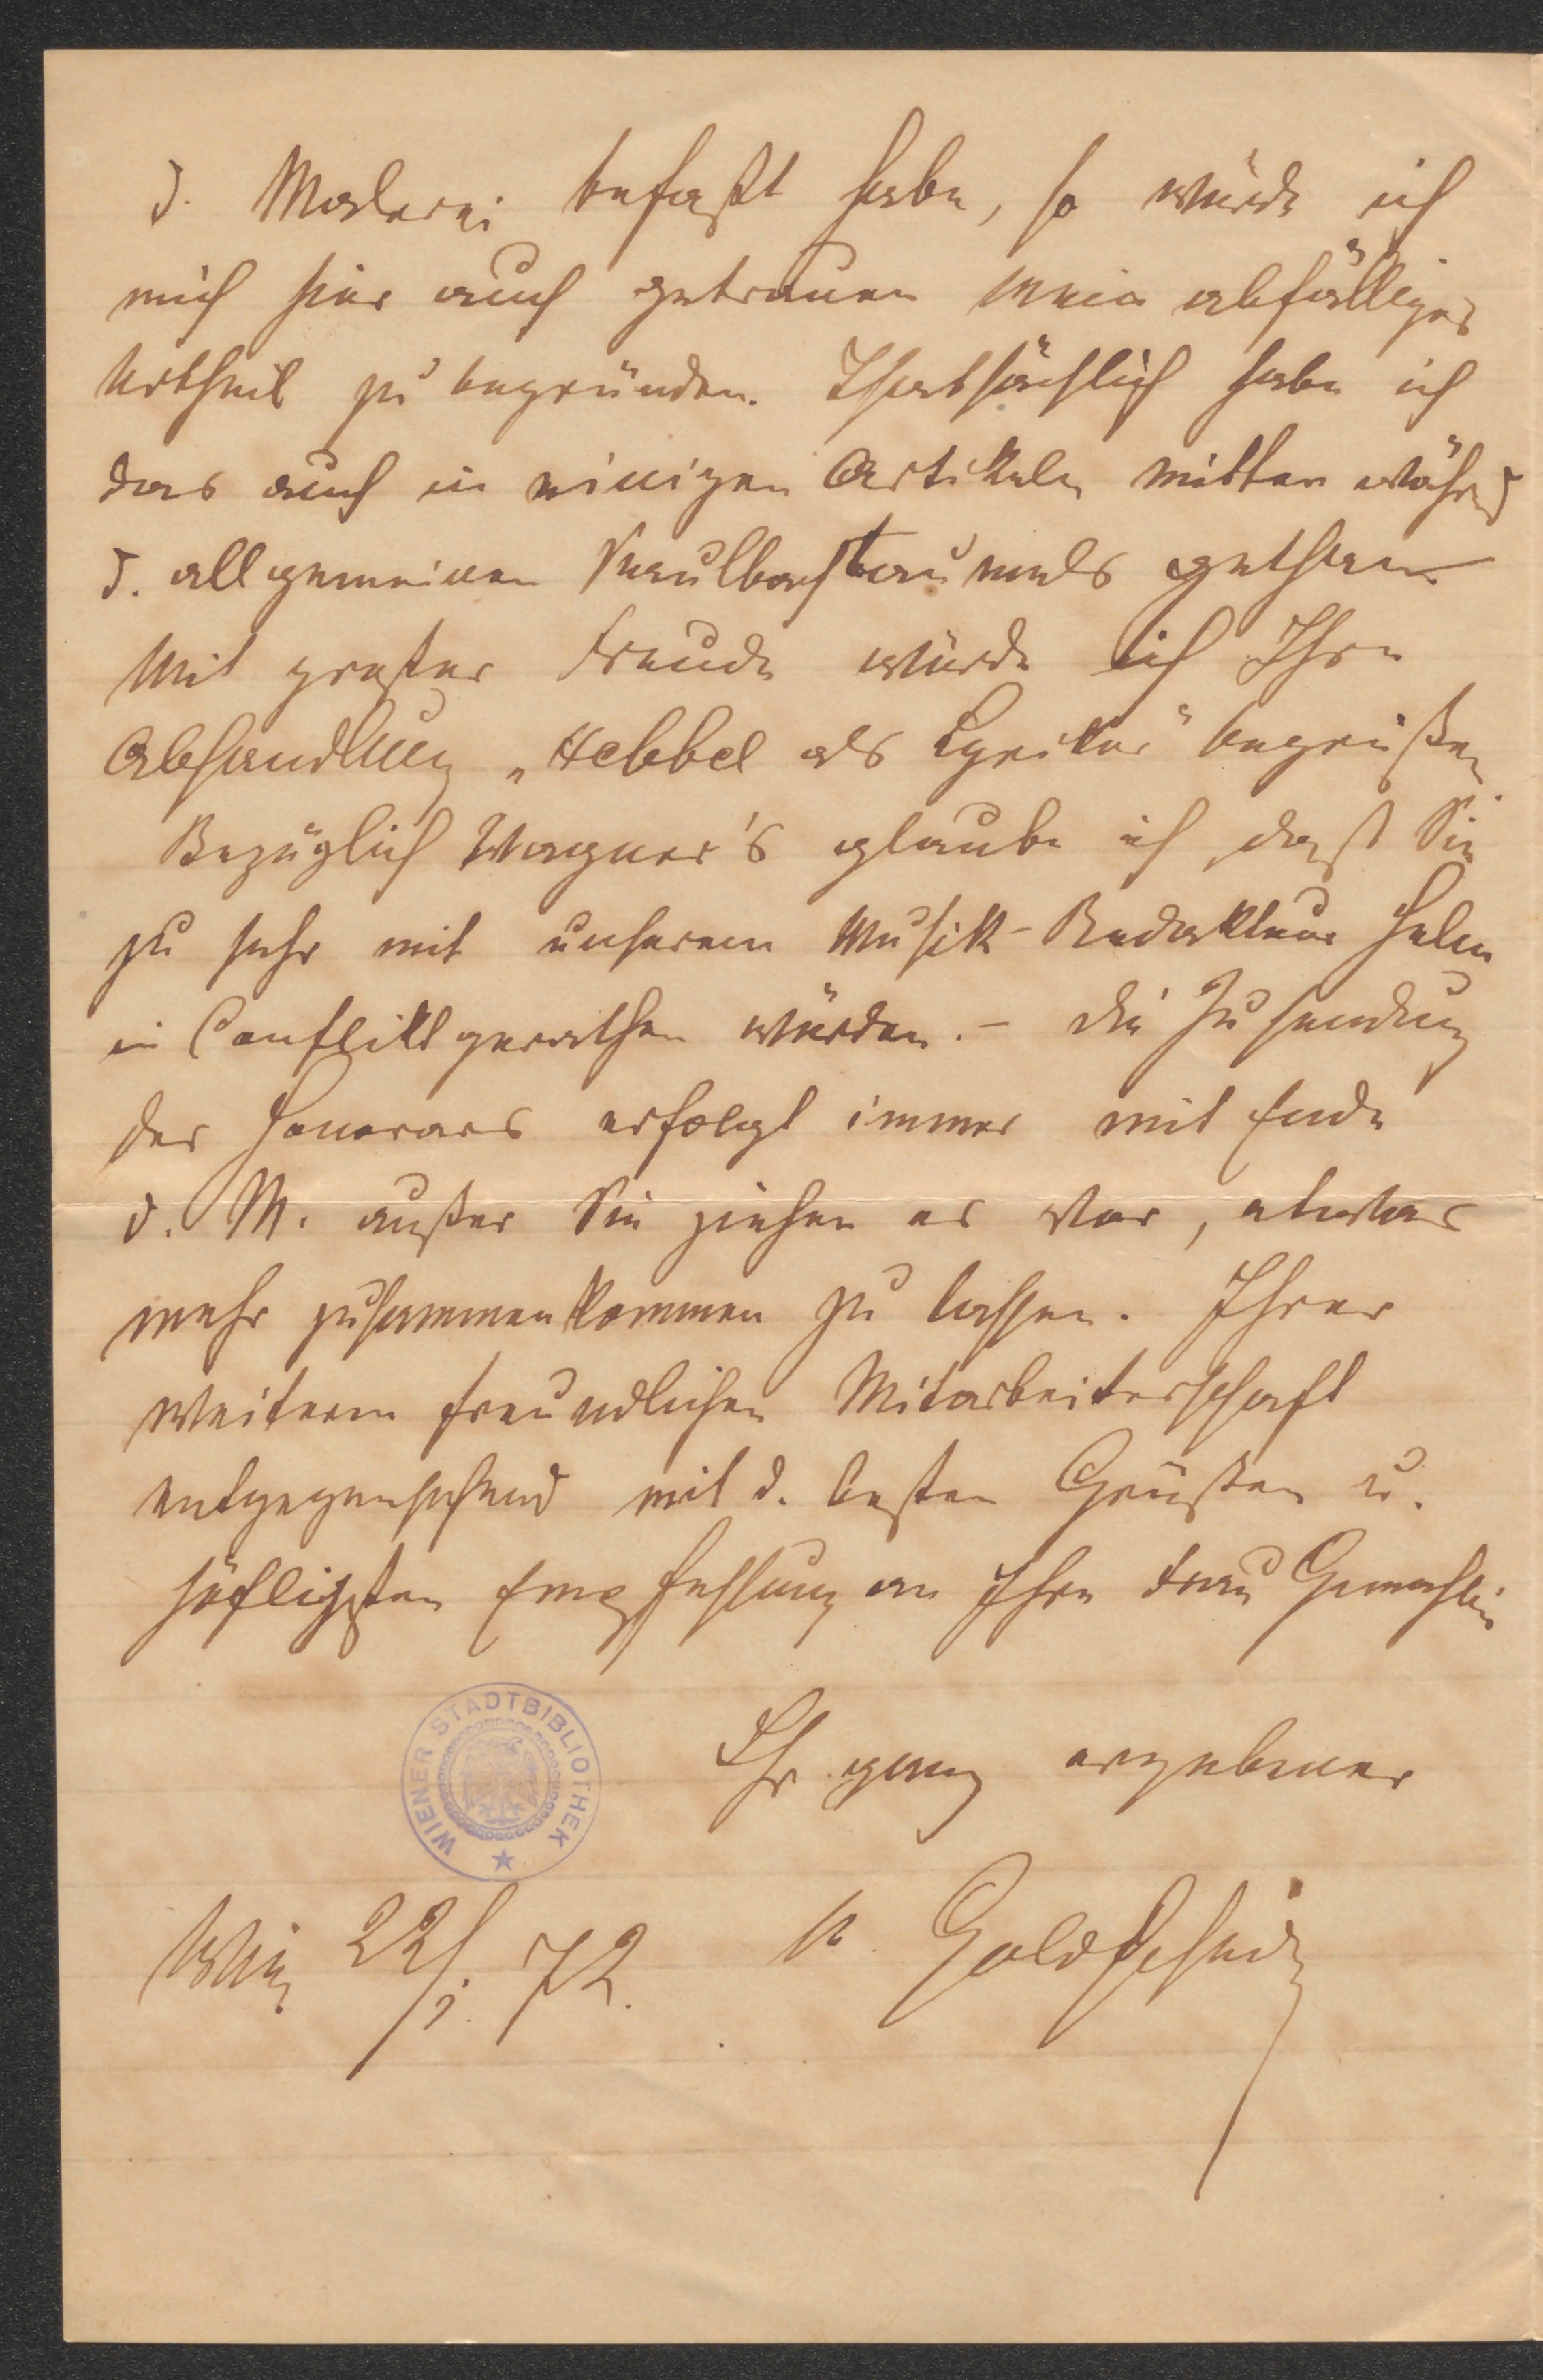 d. Malerei befaßt habe, so würde ich
mich hier auch getrauen mein abfälliges
Urtheil zu begründen. Thatsächlich habe ich
das auch in einigen Artikeln mitten währd
d. allgemeinen Kaulbachtaumels gethan.
Mit großer Freude würde ich Ihre
Abhandlung „Hebbel als Lyriker" begrüßen.
Bezüglich Wagner's glaube ich, daß Sie
zu sehr mit unserem Musik-Redakteur Helm
in Conflikt gerathen würden. – Die Zusendung
des Honorars erfolgt immer mit Ende
d. M. außer Sie ziehen es vor, etwas
mehr zusammenkommen zu lassen. Ihrer
weitern freundlichen Mitarbeiterschaft
entgegensehend mit d. besten Grüßen u.
höflichsten Empfehlung an Ihre Frau Gemahlin
Ihr ganz ergebener
Wien 22/1. 72. Goldscheid
WIENER STADTBIBLIOTHEK